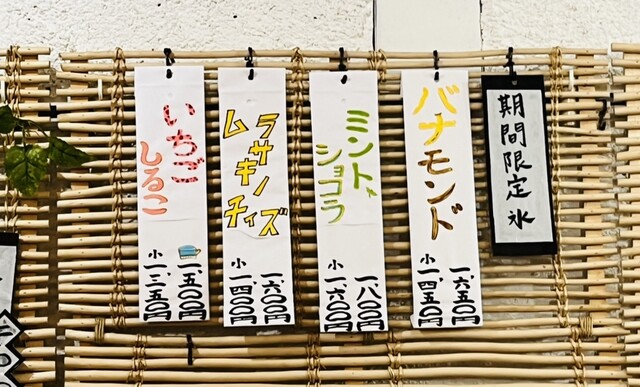 期間限定氷
バナモンド
一、六五〇円
小 一、四五〇円
ミント
ショコラ
一、八〇〇円
小 一、六〇〇円
ムラサキノ
チィズ
一、六〇〇円
小 一、四〇〇円
いちご
しるこ
一、五〇〇円
小 一、三五〇円